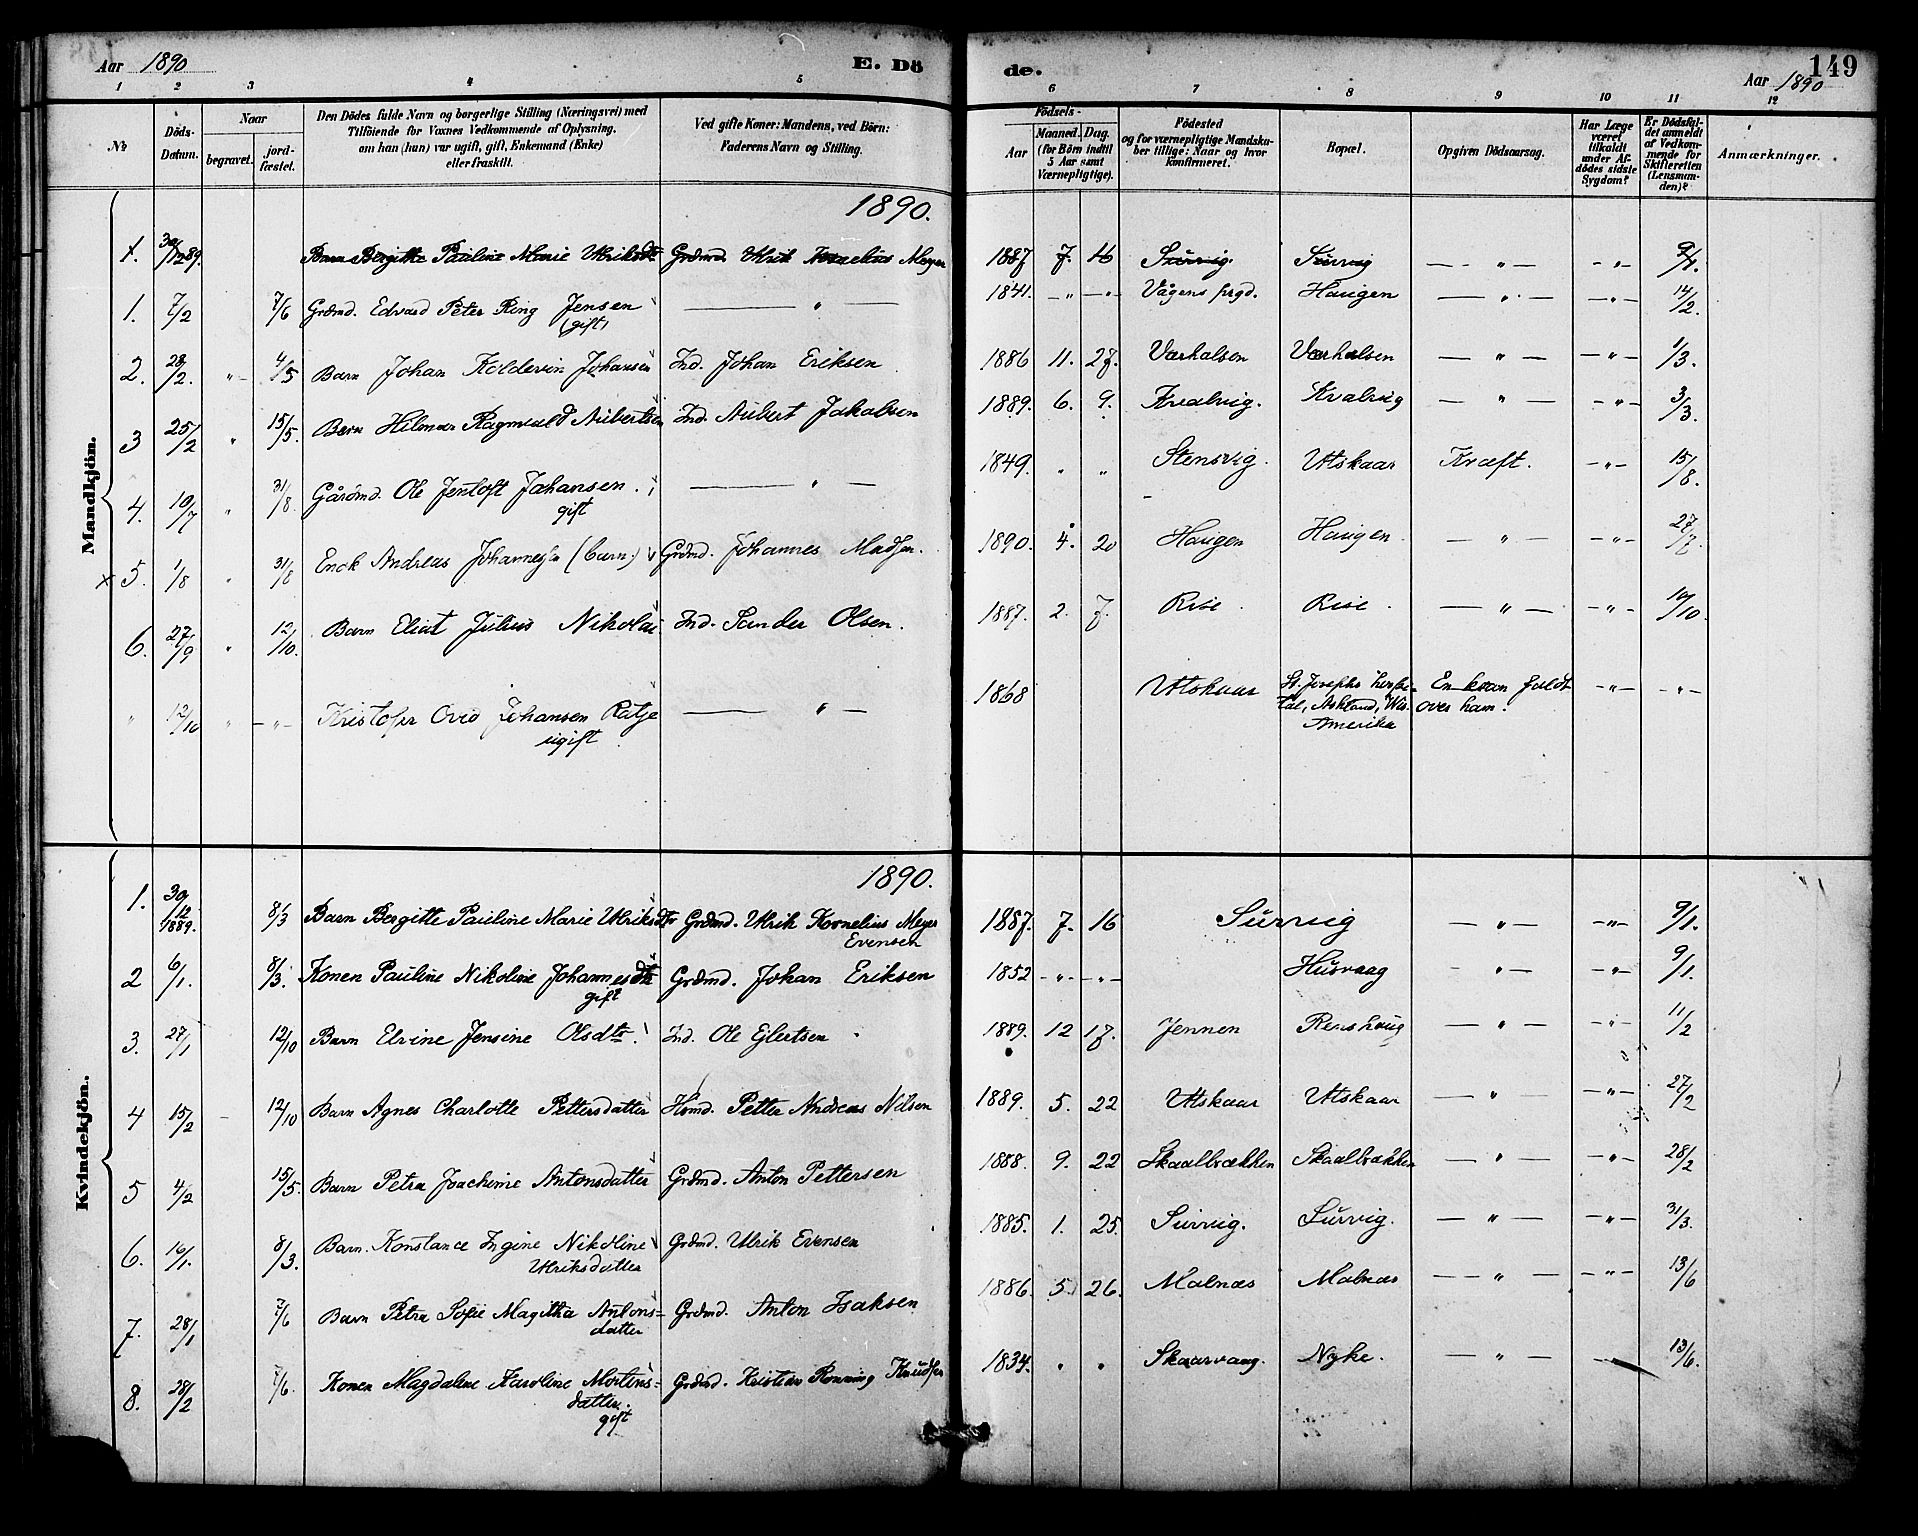 Aar 1890
E. Dö
de.
149
Aar 1890
1 2 3 4 5 6 7 8 9 10 11 12
No
Döds-Datum.
Naar
begravet.
jord-fæstet.
Den Dödes fulde Navn og borgerlige Stilling (Næringsvei) med
Tilföiende for Voxnes Vedkommende af Oplysning.
om han (hun) var ugift, gift, Enkemand (Enke)
eller fraskilt.
Ved gifte Koner: Mandens, ved Börn:
Faderens Navn og Stilling.
Födsels-
Aar
Maaned. Dag.
(for Börn indtil
5 Aar samt
Værnepligtige).
Födested
og for værnepligtige Mandska-
ber tillige: Naar og hvor
konfirmeret.
Bopæl.
Opgiven Dödsaarsag.
Har Læge
været
tilkaldt
under Af-
dödes sidste
Sygdom?
Er Dödsfal-
det anmeldt
af Vedkom-
mende for
Skifteretten
(Lensman-
den)?
Anmærkninger.
Mandkjön.
1890.
1. 30/12 89. Barn Bergitte Pauline Marie Ulriksdtr Grdmd. Ulrik Kornelius Meyer 1887 7. 16 Survig. Survig — " — -"- 9/1.
1. 7/2 7/6 Grdmd. Edvard Peter Ring Jensen — " — 1841. -"- -"- Vågens prgd. Haugen — " — -"- 14/2.
(gift)
2. 28/2. " 4/5 Barn Johan Koldevin Johansen Ind. Johan Eriksen 1886 11. 27. Varhalsen Varhalsen — " — -"- 1/3.
3 25/2 " 15/5. Barn Hilmar Ragnvald Aubertsen Ind. Aubert Jakobsen 1889. 6. 9. Kvalvig. Kvalvig — " — -"- 3/3.
4. 10/7 " 31/8 Gårdmd. Ole Jentoft Johansen. — " — 1849. " " Stensvig. Utskaar Kræft. -"- 15/8.
gift
x 5. 1/8 " 31/8 Enok Andreas Johannessen (barn) Grdmd. Johannes Madsen. 1890. 4. 20 Haugen Haugen. — " — -"- 27/7.
6. 27/9 " 12/10. Barn Eliat Julius Nikolai Ind. Sander Olsen. 1887. 2. 7. Rise. Rise. — " — -"- 10/10.
" 12/10 " -"- Kristofer Ovid Johansen Ratje — " — 1868 Utskaar St. Josephs hospi- En kran faldt -"- -"-
ugift
tal, Ashland, Wis. over ham.
Amerika
Kvindekjön.
1890.
1. 30/12 1889. 8/3 Barn Bergitte Pauline Marie Ulriksdtr Grdmd. Ulrik Kornelius Meyer 1887. 7. 16 Survig — " — -"- 9/1.
Evensen
2 6/1. 8/3. Konen Pauline Nikoline Johannesdtr Grdmd. Johan Eriksen 1852 -"- -"- Husvaag -"- -"- 9/1.
gift
3. 27/1 12/10 Barn Elvine Jensine Olsdtr. Ind. Ole Ejlertsen 1889. 12 17. Jennen Renshaug — " — -"- 11/2
4 15/2 12/10 Barn Agnes Charlotte Pettersdatter Hsmd. Petter Andreas Nilsen 1889. 5. 22 Utskaar Utskaar — " — -"- 27/2
5 4/2 15/5. Barn Petra Joachime Antonsdatter Grdmd. Anton Pettersen 1888. 9. 22 Skaalbrækken Skaalbrækken — " — -"- 28/2
6. 16/1. 8/3. Barn. Konstance Ingine Nikoline Grdmd. Ulrik Evensen 1885. 1. 25. Survig. Survig. — " — -"- 31/3.
Ulriksdatter
7. 28/1 7/6 Barn Petra Sofie Magitha Antons- Grdmd. Anton Isaksen 1886. 5. 26. Malnæs Malnæs — " — -"- 13/6
datter
8. 28/2 7/6. Konen Magdaline Karoline Mortens- Grdmd. Kristian Rønning Knudsen 1834. " " Skaarvaag. Nyke. — " — 13/6.
datter.
gift